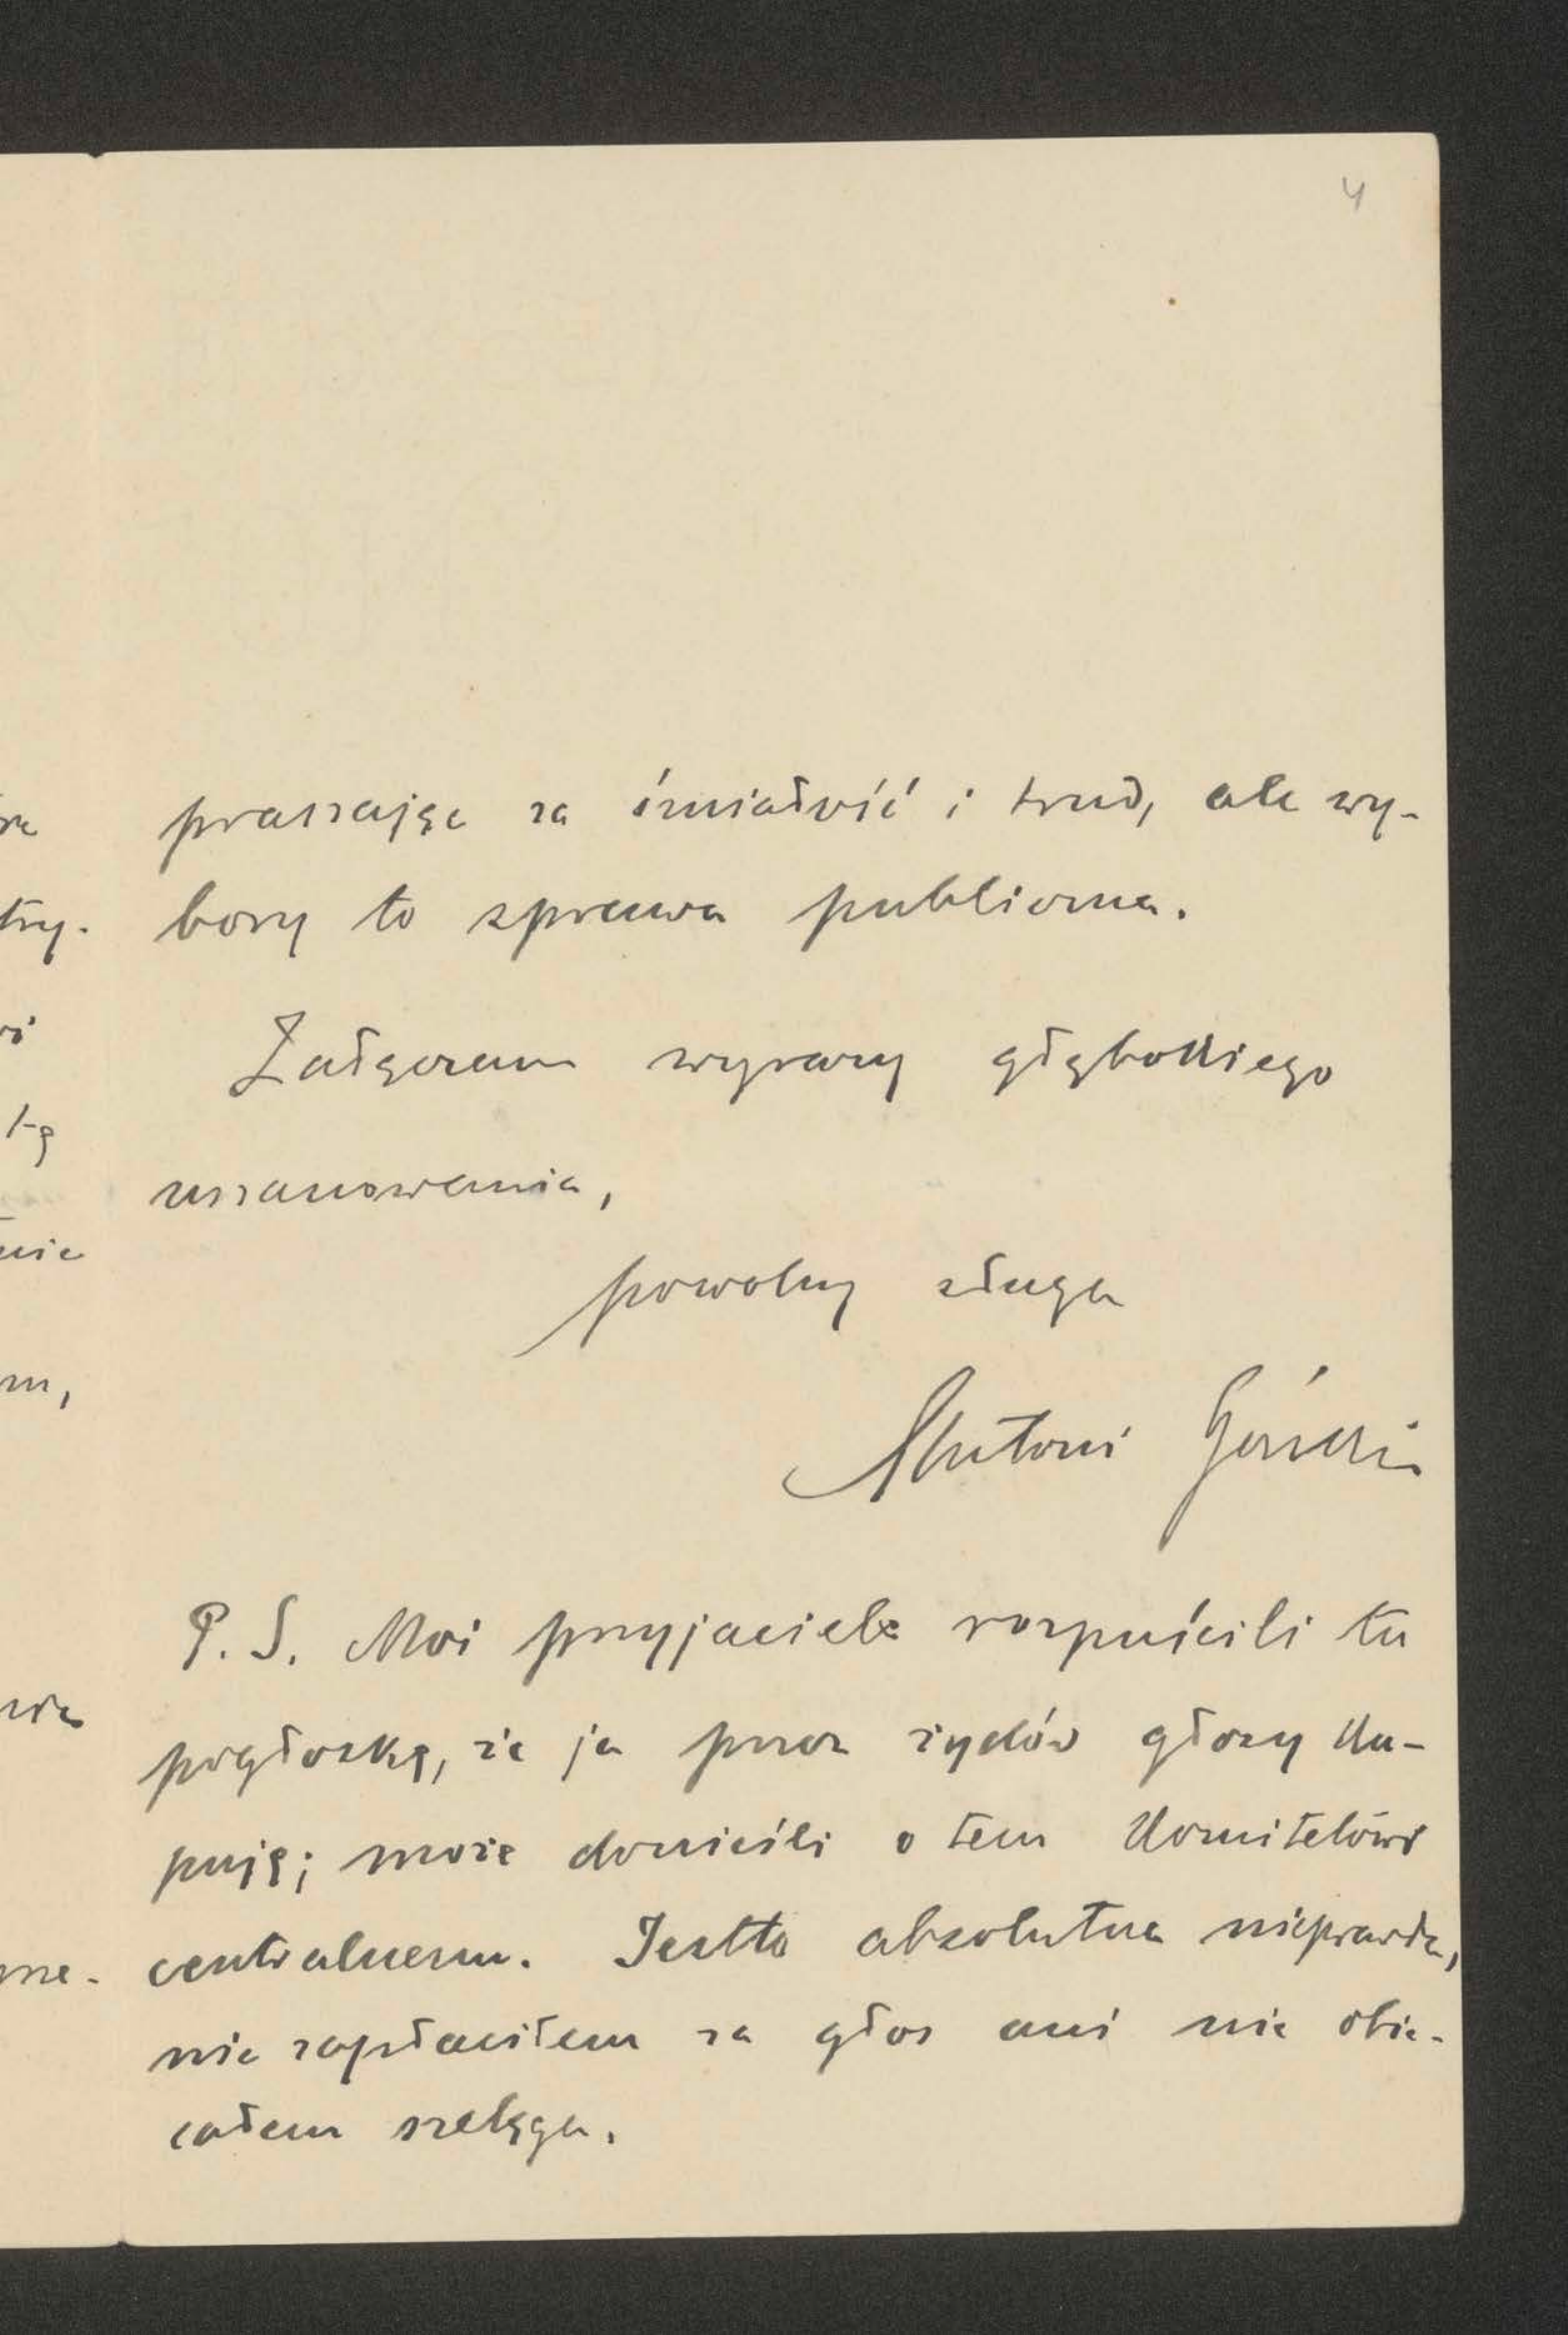 4
praszając za śmiałość i trud, ale wy-
bory to sprawa publiczna.
Załączam wyrazy głębokiego
uszanowania,
powolny sługa
Antoni Górski
P. S. Moi przyjaciele rozpuścili tu
pogłoskę, że ja przez żydów głosy ku-
puję; może donieśli o tem Komitetowi
centralnemu. Jestto absolutna nieprawda,
nie zapłaciłem za głos ani nie obie-
całem szeląga.